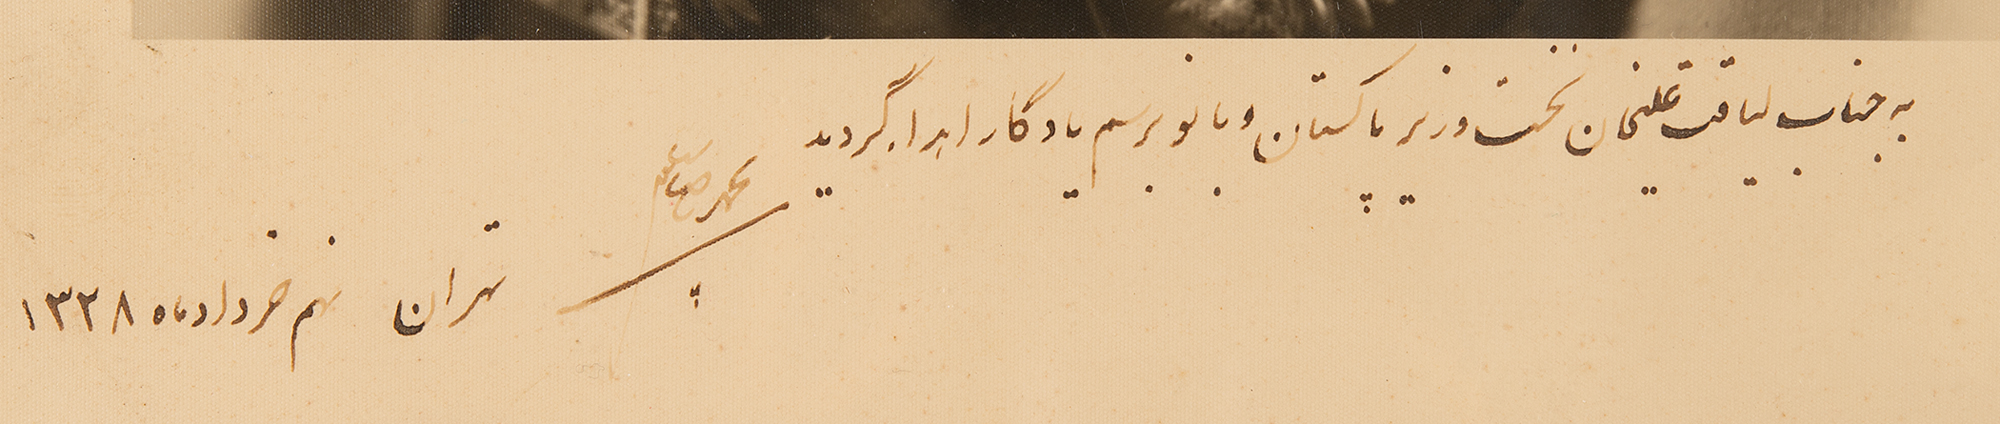 به جناب لیاقت علیخان نخست وزیر پاکستان و بانو برسم یادگار اهدا گردید
محمد ساعد
تهران نهم خرداد ماه ۱۳۲۸